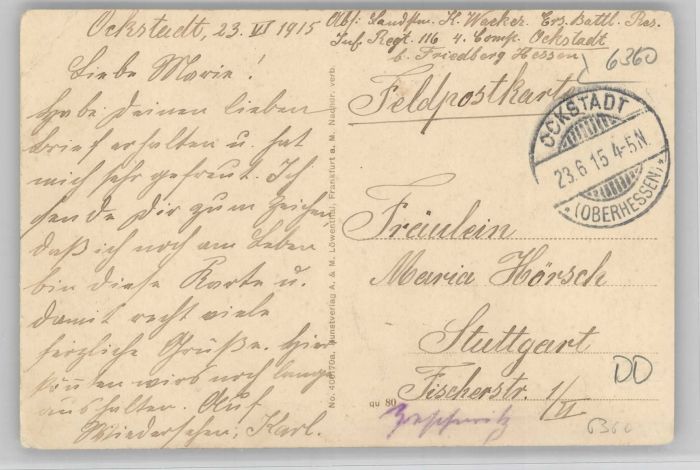 Ockstadt, 23. VI 1915
Liebe Marie!
Habe Deinen lieben
Brief erhalten u. hat
mich sehr gefreut. Ich
sende Dir zum Zeichen
daß ich noch am Leben
bin diese Karte u.
damit recht viele
herzliche Grüße. Hier
könnten wirs noch lange
aushalten. Auf
Wiedersehen, Karl.
Abs: Landstm. K. Wacker. Ers. Battl. Res.
Inf. Regt. 116 4. Comp. Ockstadt
b. Friedberg Hessen
6360
Feldpostkarte
OCKSTADT
23.6.15 4-5.N.
* (OBERHESSEN) *
Fräulein
Maria Hörsch
Stuttgart
Fischerstr. 1/II
DD
6360
qu 80
No. 406170a. Kunstverlag A. & M. Löwenthal, Frankfurt a. M. Nachdr. verb.